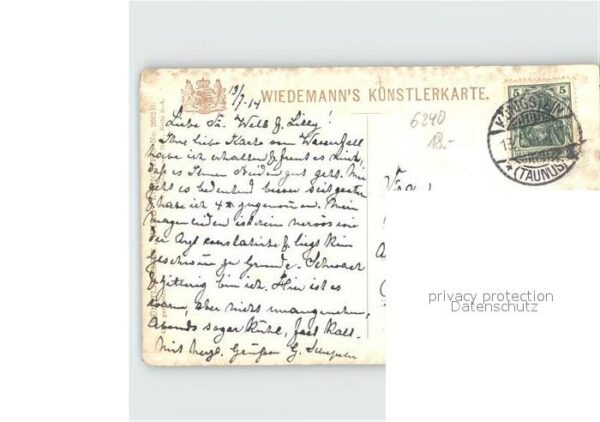 WIEDEMANN'S KÜNSTLERKARTE.
13/7.14
Liebe Fr. Wwe & Lilly!
Ihre liebe Karte vom
habe ich erhalten & freut es mich,
daß es Ihnen Beiden gut geht. Mir
geht es bedeutend besser seit gestern
& habe ich 4 ℔ zugenommen. Mein
Magenleiden ist rein nervös wie
der Arzt konstatierte & liegt kein
Geschwür zu Grunde. Schwach
& zittrig bin ich. Hier ist es
warm, aber nicht unangenehm,
Abends sogar kühl, fast kalt.
Mit herzl. Grüßen G.
6240
18.-
5
5
KÖNIGSTEIN
13.7.
* (TAUNUS)
privacy protection
Datenschutz